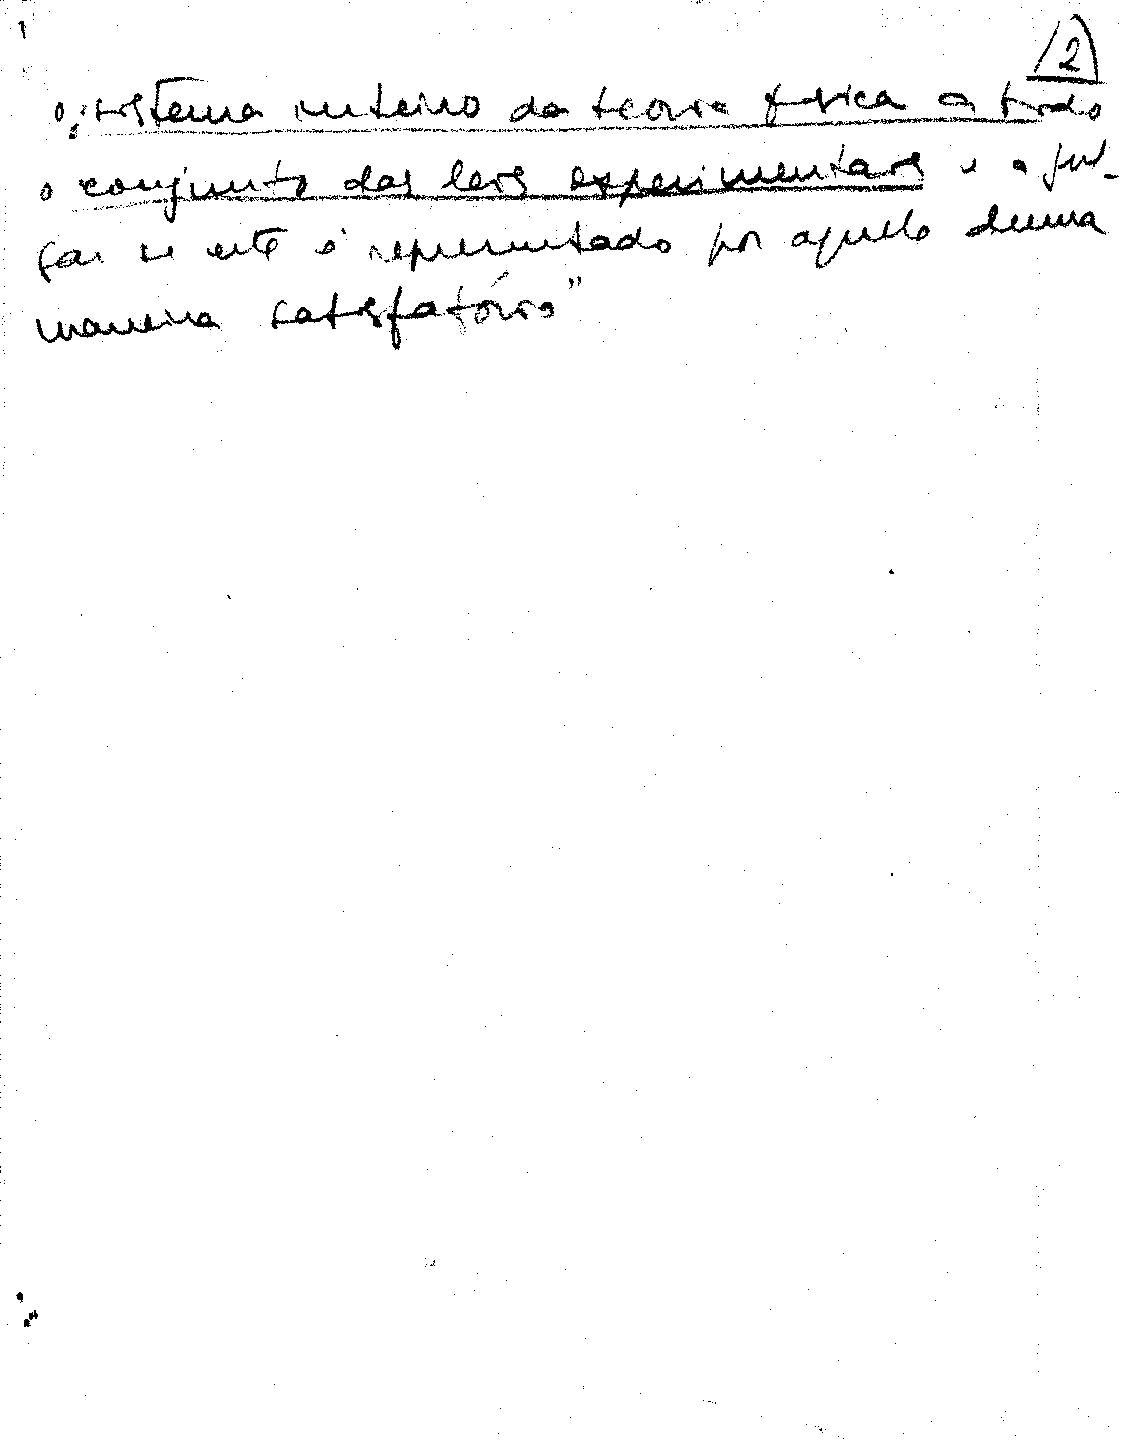 12
o sistema inteiro da teoria física a todo
o conjunto das leis experimentais e a jul-
gar se este é representado por aquele duma
maneira satisfatória"